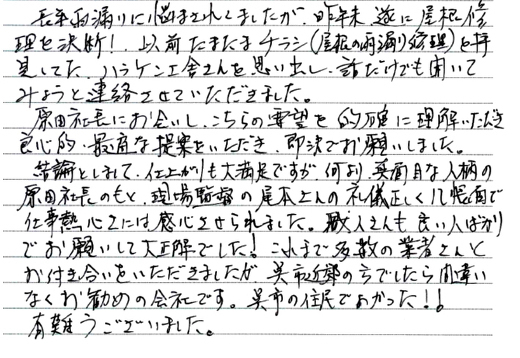 長年雨漏りに悩まされてきましたが、昨年末 遂に屋根修
理を決断！以前たまたまチラシ(屋根の雨漏り修理)を拝
見してた、ハラケン工舎さんを思い出し、話だけでも聞いて
みようと連絡させていただきました。
原田社長にお会いし、こちらの要望を的確に理解いただき
良心的・最高な提案をいただき、即決でお願いしました。
結論としまして、仕上がりも大満足ですが、何より、真面目な人柄の
原田社長のもと、現場監督の尾本さんの礼儀正しく几帳面で
仕事熱心さには感心させられました。職人さんも良い人ばかり
でお願いして大正解でした！これまで多数の業者さんと
お付き合いをいただきましたが、呉市近郊の方でしたら間違い
なくお勧めの会社です。呉市の住民でよかった！！
有難うございました。